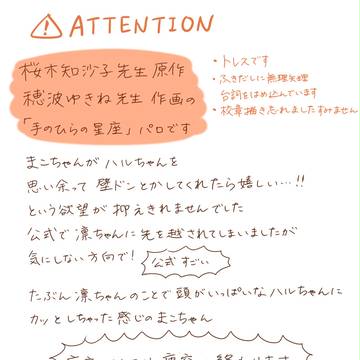 ATTENTION
桜木知沙子先生 原作
穂波ゆきね先生 作画の
「手のひらの星座」パロです
・トレスです
・ふきだしに無理矢理
台詞をはめ込んでいます
・校章描き忘れましたすみません
まこちゃんがハルちゃんを
思い余って 壁ドンとかしてくれたら嬉しい…!!
という欲望が 抑えきれませんでした
公式で凛ちゃんに先を越されてしまいましたが
気にしない方向で!
公式 すごい
たぶん凛ちゃんのことで頭がいっぱいなハルちゃんに
カッとしちゃった感じのまこちゃん